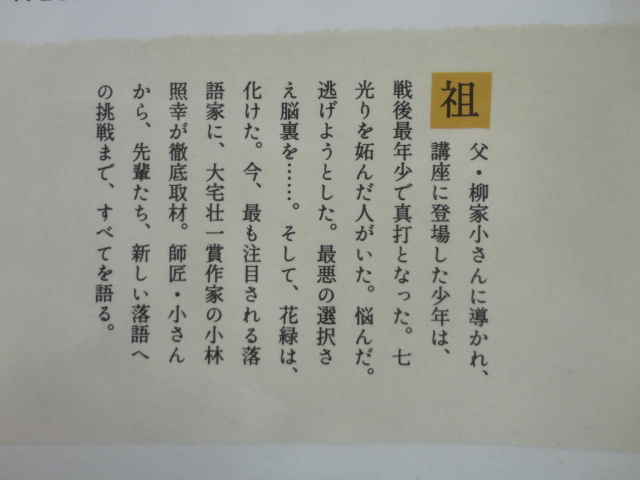 祖父・柳家小さんに導かれ、
講座に登場した少年は、
戦後最年少で真打となった。七
光りを妬んだ人がいた。悩んだ。
逃げようとした。最悪の選択さ
え脳裏を……。そして、花緑は、
化けた。今、最も注目される落
語家に、大宅壮一賞作家の小林
照幸が徹底取材。師匠・小さん
から、先輩たち、新しい落語へ
の挑戦まで、すべてを語る。